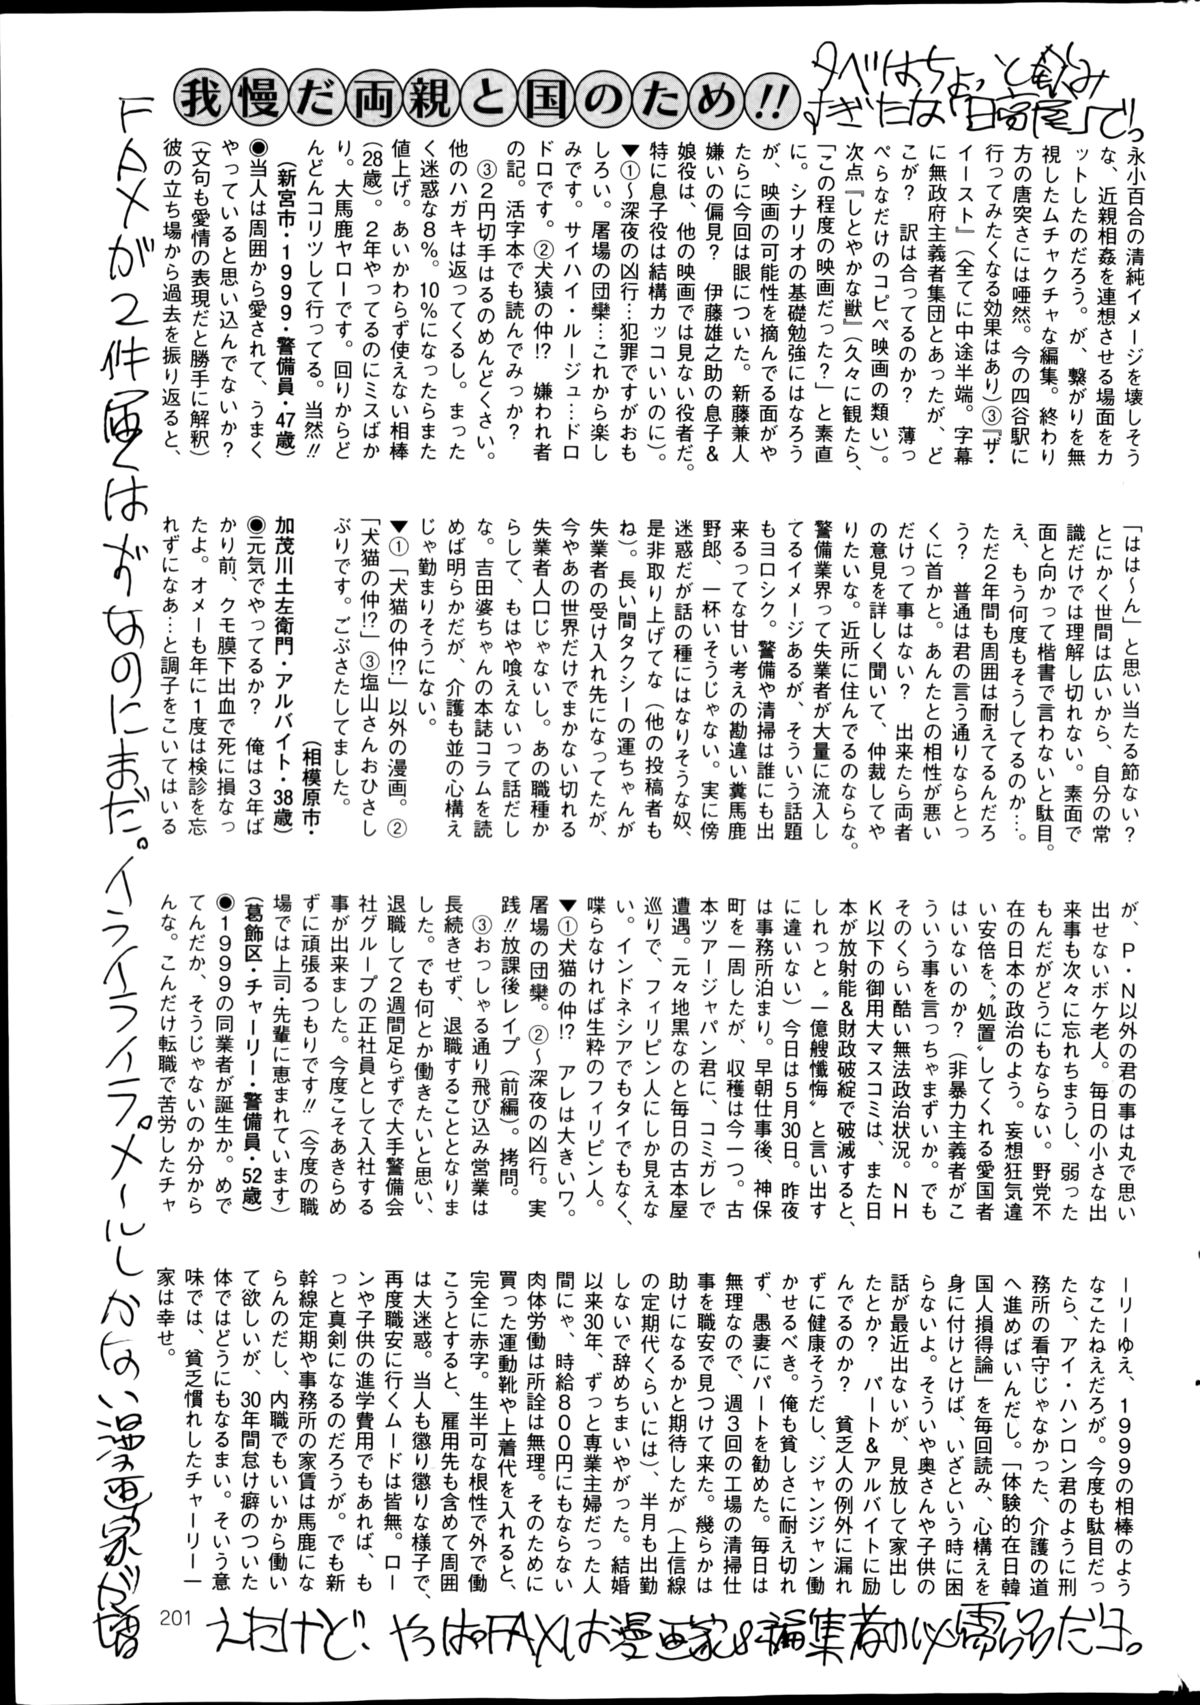 我慢だ両親と国のため!!
夕べはちょっと飲み
すぎたな「日高屋」でっ
永小百合の清純イメージを壊しそう
な、近親相姦を連想させる場面をカ
ットしたのだろう。が、繋がりを無
視したムチャクチャな編集。終わり
方の唐突さには唖然。今の四谷駅に
行ってみたくなる効果はあり)③『ザ・
イースト』(全てに中途半端。字幕
に無政府主義者集団とあったが、ど
こが? 訳は合ってるのか? 薄っ
ぺらなだけのコピペ映画の類い)。
次点『しとやかな獣』(久々に観たら、
「この程度の映画だった?」と素直
に。シナリオの基礎勉強にはなろう
が、映画の可能性を摘んでる面がや
たらに今回は眼についた。新藤兼人
嫌いの偏見? 伊藤雄之助の息子&
娘役は、他の映画では見ない役者だ。
特に息子役は結構カッコいいのに)。
▼①~深夜の凶行…犯罪ですがおも
しろい。屠場の団欒…これから楽し
みです。サイハイ・ルージュ…ドロ
ドロです。②犬猿の仲!? 嫌われ者
の記。活字本でも読んでみっか?
③2円切手はるのめんどくさい。
他のハガキは返ってくるし。まった
く迷惑な8%。10%になったらまた
値上げ。あいかわらず使えない相棒
(28歳)。2年やってるのにミスばか
り。大馬鹿ヤローです。回りからど
んどんコリツして行ってる。当然!!
(新宮市・1999・警備員・47歳)
●当人は周囲から愛されて、うまく
やっていると思い込んでないか?
(文句も愛情の表現だと勝手に解釈)
彼の立ち場から過去を振り返ると、
「はは~ん」と思い当たる節ない?
とにかく世間は広いから、自分の常
識だけでは理解し切れない。素面で
面と向かって楷書で言わないと駄目。
え、もう何度もそうしてるのか…。
ただ2年間も周囲は耐えてるんだろ
う? 普通は君の言う通りならとっ
くに首かと。あんたとの相性が悪い
だけって事はない? 出来たら両者
の意見を詳しく聞いて、仲裁してや
りたいな。近所に住んでるのならな。
警備業界って失業者が大量に流入し
てるイメージあるが、そういう話題
もヨロシク。警備や清掃は誰にも出
来るってな甘い考えの勘違い糞馬鹿
野郎、一杯いそうじゃない。実に傍
迷惑だが話の種にはなりそうな奴、
是非取り上げてな(他の投稿者も
ね)。長い間タクシーの運ちゃんが
失業者の受け入れ先になってたが、
今やあの世界だけでまかない切れる
失業者人口じゃないし。あの職種か
らして、もはや喰えないって話だし
な。吉田婆ちゃんの本誌コラムを読
めば明らかだが、介護も並の心構え
じゃ勤まりそうにない。
▼①「犬猫の仲!?」以外の漫画。②
「犬猫の仲!?」③塩山さんおひさし
ぶりです。ごぶさたしてました。
(相模原市・
加茂川土左衛門・アルバイト・38歳)
●元気でやってるか? 俺は3年ば
かり前、クモ膜下出血で死に損なっ
たよ。オメーも年に1度は検診を忘
れずになあ…と調子をこいてはいる
が、P・N以外の君の事は丸で思い
出せないボケ老人。毎日の小さな出
来事も次々に忘れちまうし、弱った
もんだがどうにもならない。野党不
在の日本の政治のよう。妄想狂気違
い安倍を、〝処置〟してくれる愛国者
はいないのか?(非暴力主義者がこ
ういう事を言っちゃまずいか。でも
そのくらい酷い無法政治状況。NH
K以下の御用大マスコミは、また日
本が放射能&財政破綻で破滅すると、
しれっと〝一億総懺悔〟と言い出す
に違いない)今日は5月30日。昨夜
は事務所泊まり。早朝仕事後、神保
町を一周したが、収穫は今一つ。古
本ツアージャパン君に、コミガレで
遭遇。元々地黒なのと毎日の古本屋
巡りで、フィリピン人にしか見えな
い。インドネシアでもタイでもなく、
喋らなければ生粋のフィリピン人。
▼①犬猫の仲!? アレは大きいワ。
屠場の団欒。②~深夜の凶行。実
践!!放課後レイプ(前編)。拷問。
③おっしゃる通り飛び込み営業は
長続きせず、退職することとなりま
した。でも何とか働きたいと思い、
退職して2週間足らずで大手警備会
社グループの正社員として入社する
事が出来ました。今度こそあきらめ
ずに頑張るつもりです!!(今度の職
場では上司・先輩に恵まれています)
(葛飾区・チャーリー・警備員・52歳)
●1999の同業者が誕生か。めで
てんだか、そうじゃないのか分から
んな。こんだけ転職で苦労したチャ
ーリーゆえ、1999の相棒のよう
なこたねえだろが。今度も駄目だっ
たら、アイ・ハンロン君のように刑
務所の看守じゃなかった、介護の道
へ進めばいんだし。「体験的在日韓
国人損得論」を毎回読み、心構えを
身に付けとけば、いざという時に困
らないよ。そういや奥さんや子供の
話が最近出ないが、見放して家出し
たとか? パート&アルバイトに励
んでるのか? 貧乏人の例外に漏れ
ずに健康そうだし、ジャンジャン働
かせるべき。俺も貧しさに耐え切れ
ず、愚妻にパートを勧めた。毎日は
無理なので、週3回の工場の清掃仕
事を職安で見つけて来た。幾らかは
助けになるかと期待したが(上信線
の定期代くらいには)、半月も出勤
しないで辞めちまいやがった。結婚
以来30年、ずっと専業主婦だった人
間にゃ、時給800円にもならない
肉体労働は所詮は無理。そのために
買った運動靴や上着代を入れると、
完全に赤字。生半可な根性で外で働
こうとすると、雇用先も含めて周囲
は大迷惑。当人も懲り懲りな様子で、
再度職安に行くムードは皆無。ロー
ンや子供の進学費用でもあれば、も
っと真剣になるのだろうが。でも新
幹線定期や事務所の家賃は馬鹿にな
らんのだし、内職でもいいから働い
て欲しいが、30年間怠け癖のついた
体ではどうにもなるまい。そういう意
味では、貧乏慣れしたチャーリー一
家は幸せ。
FAXが2件届くはずなのにまだ。イライライラ。メールしかない漫画家が増
えたけど、やっぱFAXは漫画家&編集者の必需品だヨ。
201